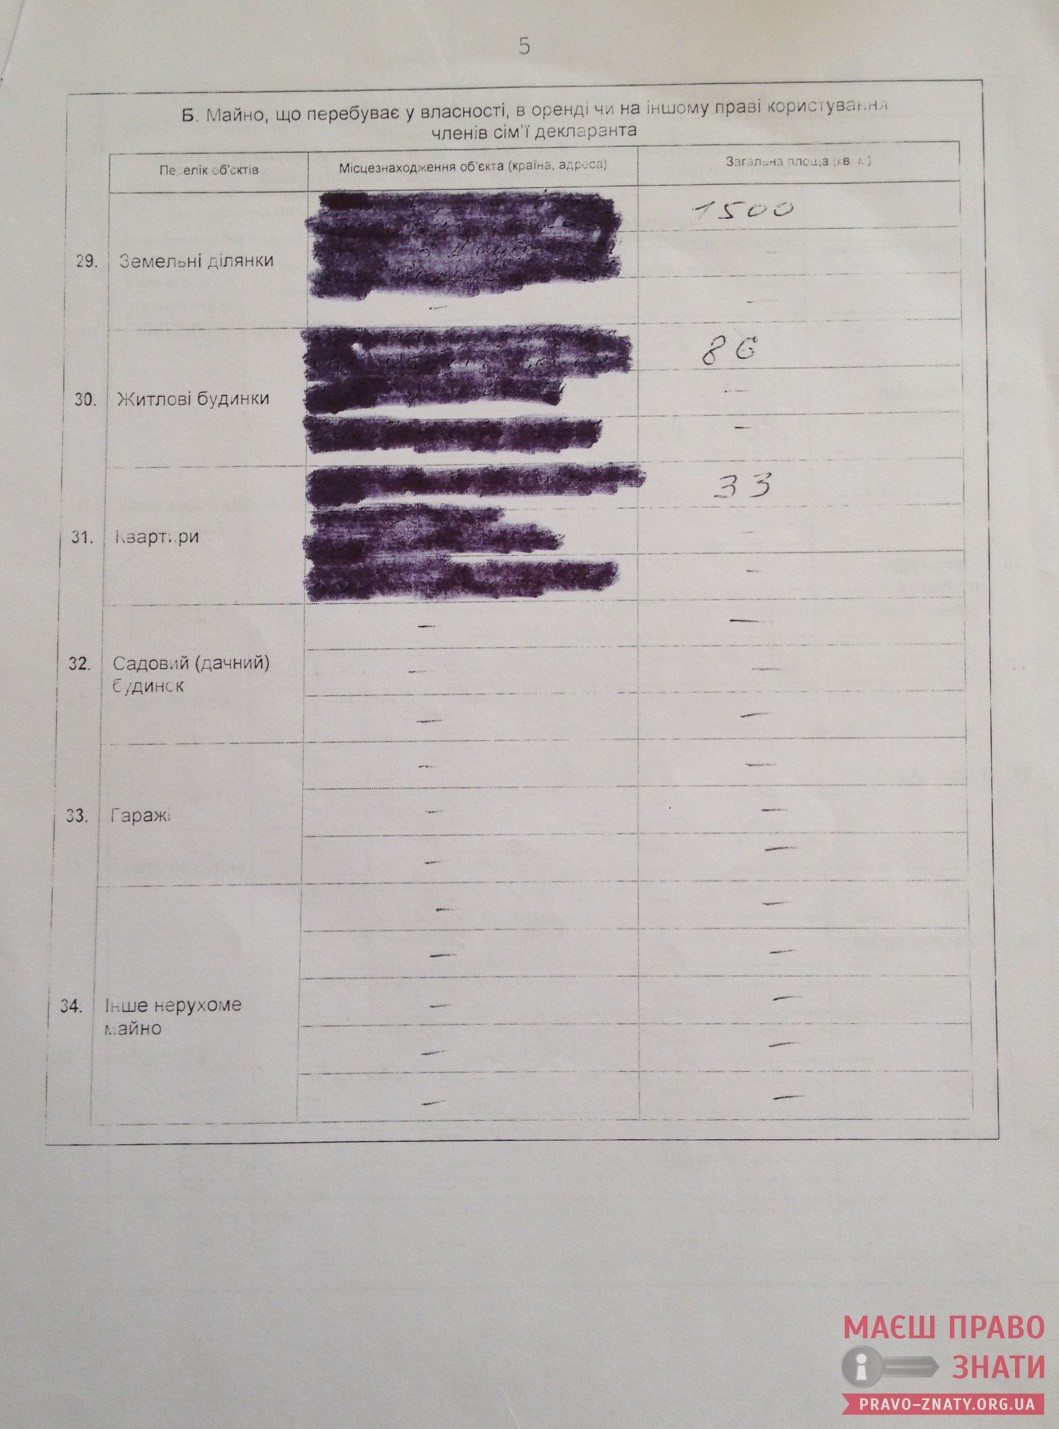 5
Б. Майно, що перебуває у власності, в оренді чи на іншому праві користування
членів сім'ї декларанта
Перелік об'єктів
Місцезнаходження об'єкта (країна, адреса)
Загальна площа (кв. м)
29. Земельні ділянки
1500
-
- -
30. Житлові будинки
86
-
-
31. Квартири
33
-
-
- -
32. Садовий (дачний)
будинок
- -
- -
- -
33. Гаражі
- -
- -
- -
- -
34. Інше нерухоме
майно
- -
- -
- -
МАЄШ ПРАВО
ЗНАТИ
PRAVO-ZNATY.ORG.UA